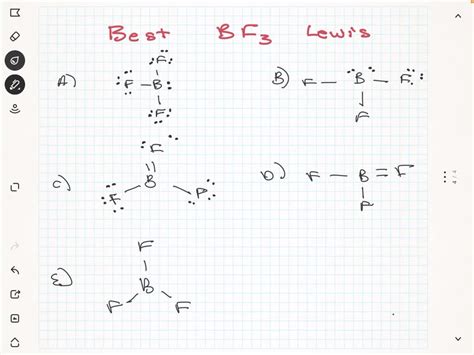 Best BF3 Lewis
A)
F
F — B
F
B) F — B — F
F
C)
F
B
F F
D) F — B = F
F
E)
F
B
F F